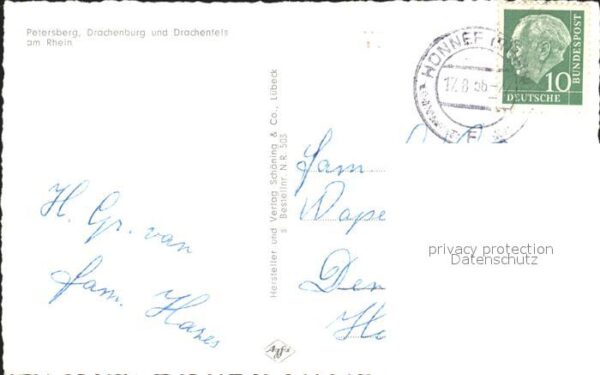 Petersberg, Drachenburg und Drachenfels
am Rhein
HONNEF
17.8.56
10
DEUTSCHE
BUNDESPOST
Hersteller und Verlag Schöning & Co., Lübeck
s Bestellnr. N.R. 503
H. Gr. van
Fam. Hazes
Fam
Wape
Den
Ha
privacy protection
Datenschutz
Agfa